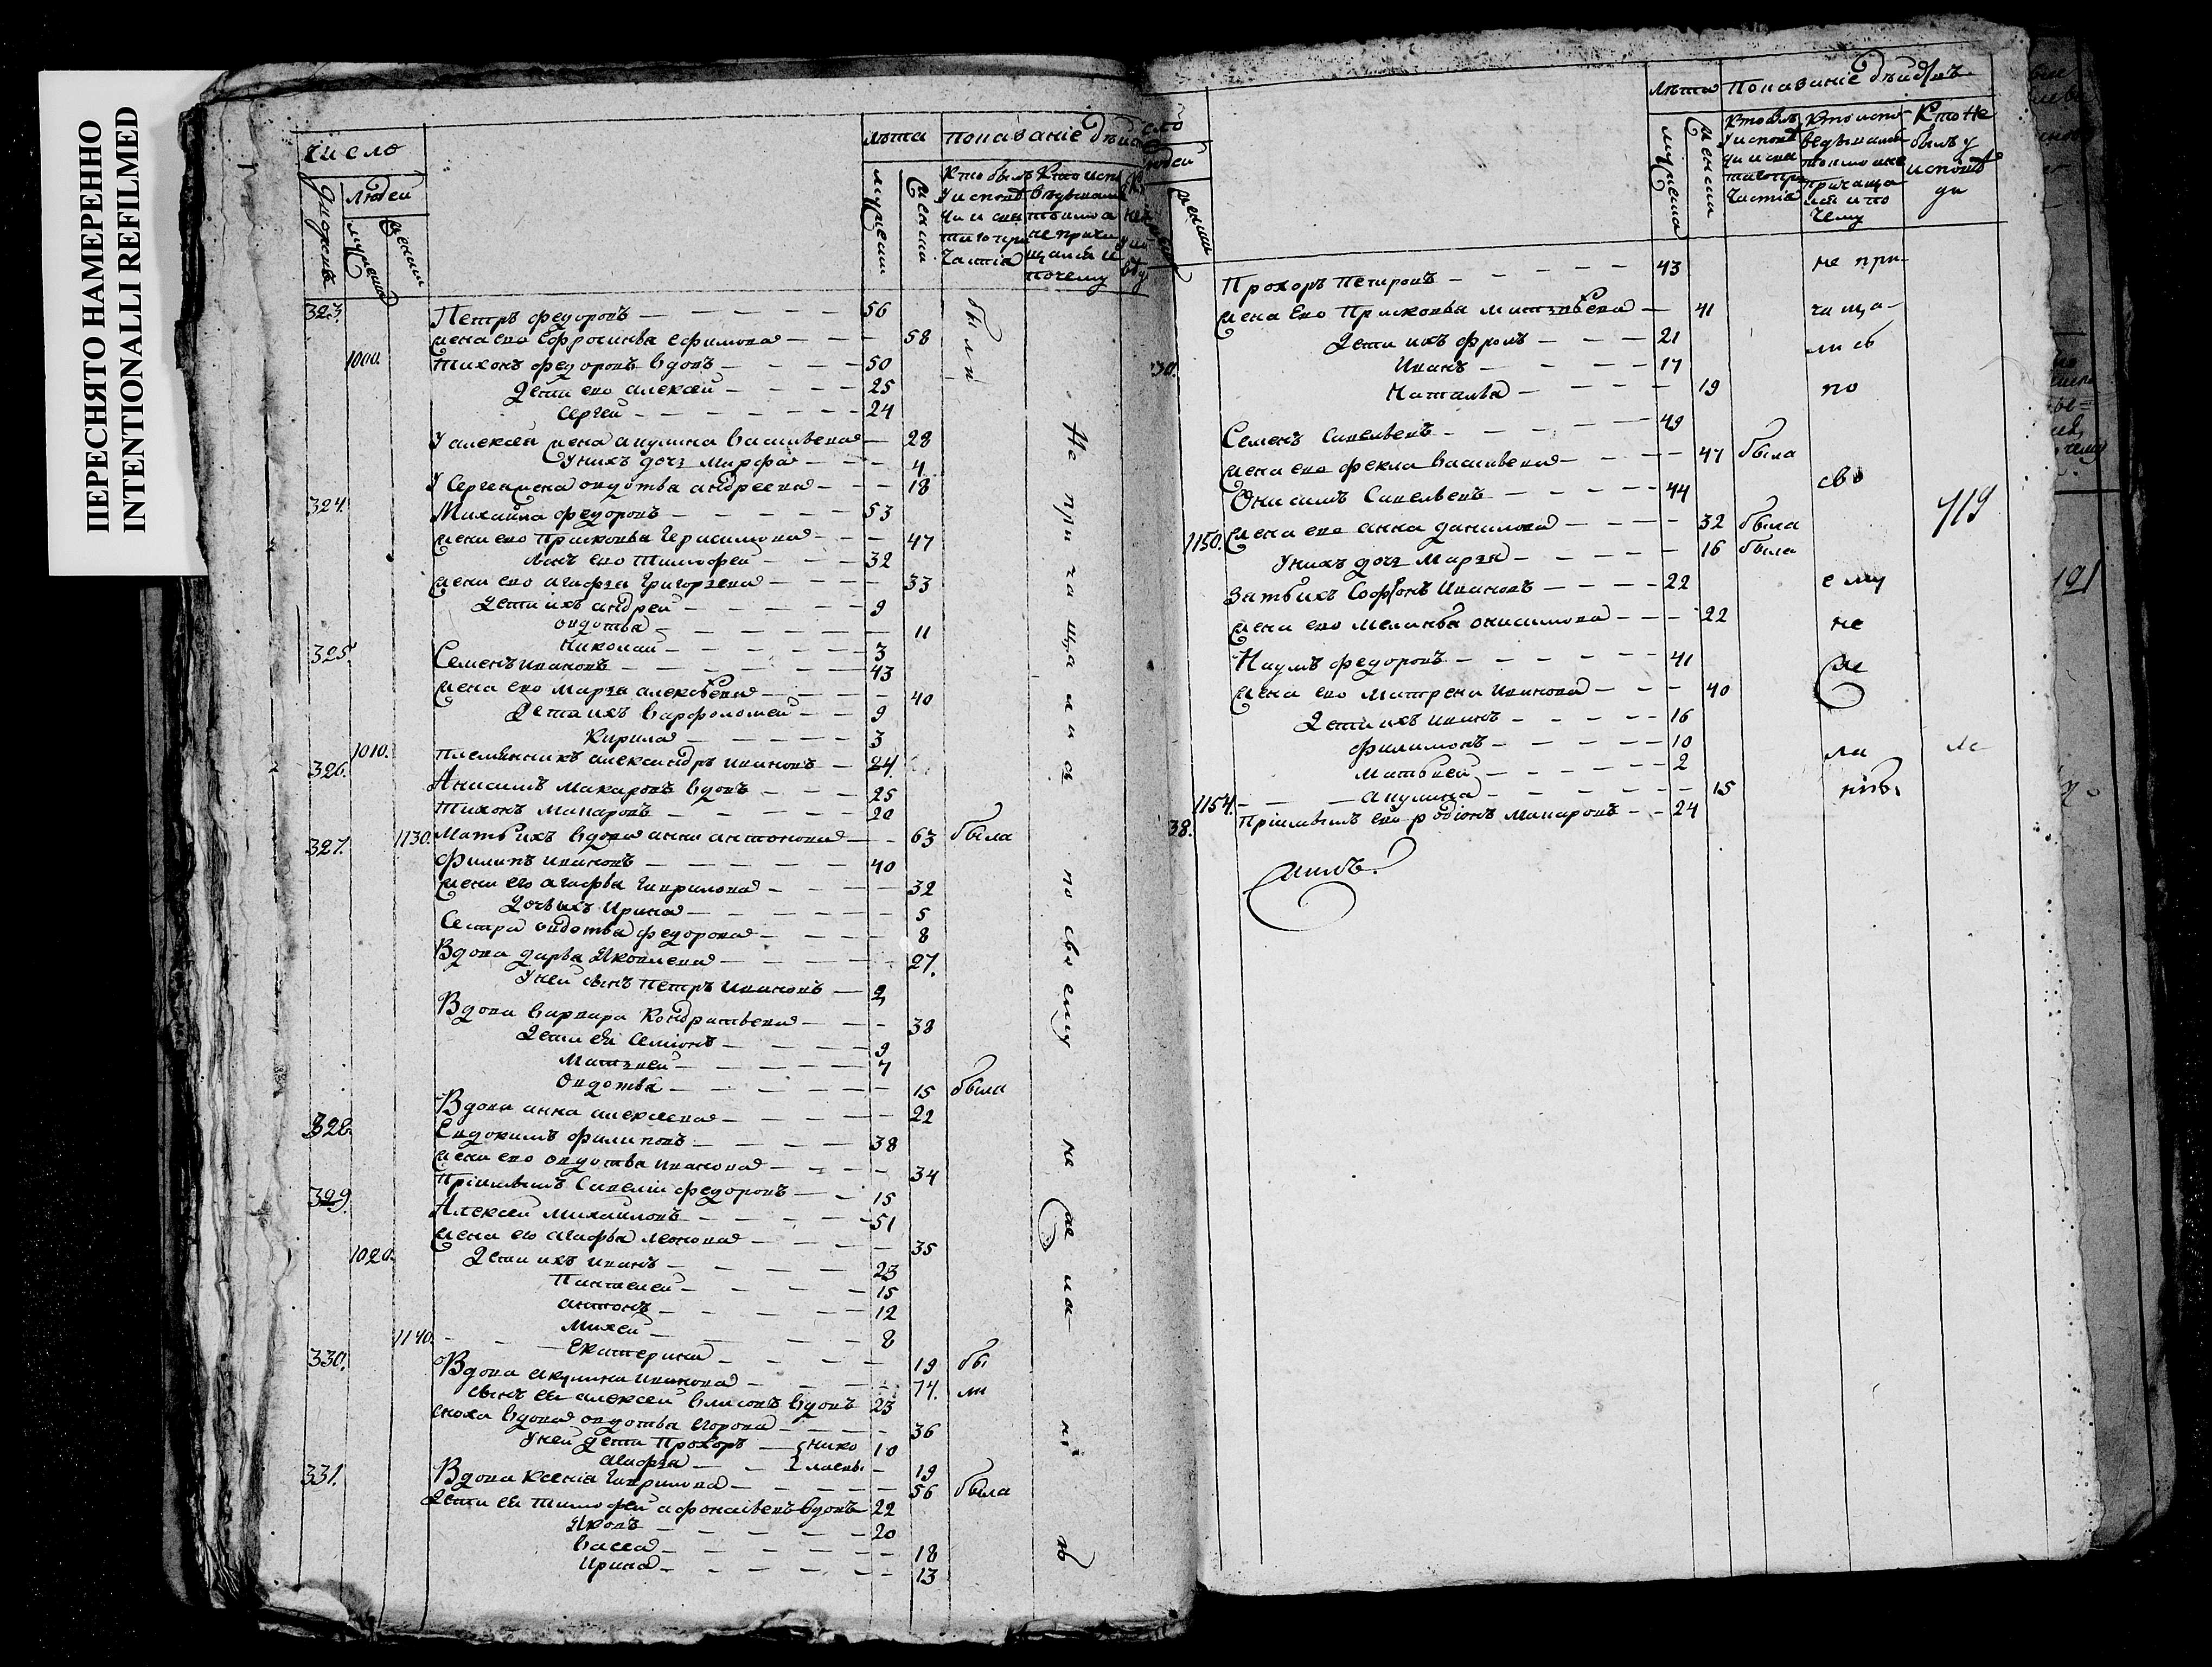 ПЕРЕСНЯТО НАМЕРЕННО
INTENTIONALLI REFILMED
число
дворовъ
людей
мужеска
женска
лѣта
мужески
женски
показаніе
Кто былъ
у исповѣ
ди и свя
таго при
частія
Кто исп
вѣдывал
токмо а
не прича
щался и
почему
323. Петръ федоровъ 56 были
жена ево Ефросинья ефимова 58
1000. тихонъ федоровъ вдовъ 50
Дети ево алексей 25
Сергей 24
У алексея жена акулина васильева 28
У нихъ дочь Марфа 4
У Сергея жена овдотья андреева 18
324. Михайла федоровъ 53
жена ево Прасковья Герасимова 47
зять ево Тимофей 32
жена ево агафья Григорьева 33
Дети ихъ андрей 9
овдотья 11
Николай 3
325. Семенъ ивановъ 43
жена ево Марья алексеева 40
Дети ихъ варфоломей 9
Кирила 3
1010. племянникъ александръ ивановъ 24
326. Анисимъ Макаровъ вдовъ 25
тихонъ макаровъ 20
1130. Мать ихъ вдова анна антонова 63 была
327. Филипъ ивановъ 40
жена его агафья гаврилова 32
Дочь ихъ Ирина 5
Сестра овдотья федорова 8
Вдова дарья Яковлева 27.
У ней сынъ петръ ивановъ 2
Вдова варвара Кондратьева 38
Дети ея Семіонъ 9
Матвей 7
Овдотья 15 была
Вдова анна алексеева 22
328. Евдокимъ филиповъ 38
жена ево овдотья иванова 34
Пріимышъ Савелій федоровъ 15
329. Алексей михаиловъ 51
жена его агафья леонова 35
1020. Дети ихъ иванъ 23
Пантелей 15
антонъ 12
Михей 8
1140. Екатерина 19 бы
330. Вдова акулина иванова 74. ли
сынъ ея алексей власовъ вдовъ 23
сноха вдова овдотья егорова 36
У ней дети Прохоръ 10
агафья 19
331. Вдова Ксенія гаврилова 56 была
Дети ея тимофей афонасьевъ вдовъ 22
Яковъ 20
васса 18
Ирина 13
Не при ча ща ли ся по сво ему не же ла ні ю
лѣта
мужеска
женски
Показаніе дѣйствъ
Кто былъ
у исповѣ
ди и свя
таго при
частія
Кто испо
ведывался
токмо не
причаща
лся и по
чему
Кто не
былъ у
исповѣ
ди
Прохоръ Петровъ 43 не при
жена Ево Прасковья матвѣева 41 чаща-
Дети ихъ фролъ 21 ли сь
Иванъ 17
Наталья 19 по
Семенъ Савельевъ 49
жена ево фекла васильева 47 была
Онисимъ Савельевъ 44 сво
1150. жена ево анна данилова 32 была
У нихъ дочь Марья 16 была
Зять ихъ Софронъ Ивановъ 22 ему
жена ево меланья онисимова 22 не
Наумъ федоровъ 41 же
жена ево матрена иванова 40
Дети ихъ иванъ 16
филимонъ 10 ла
Матвѣей 2
1154. акулина 15 нію
38. Пріимышъ ево родіонъ макаровъ 24
119
121